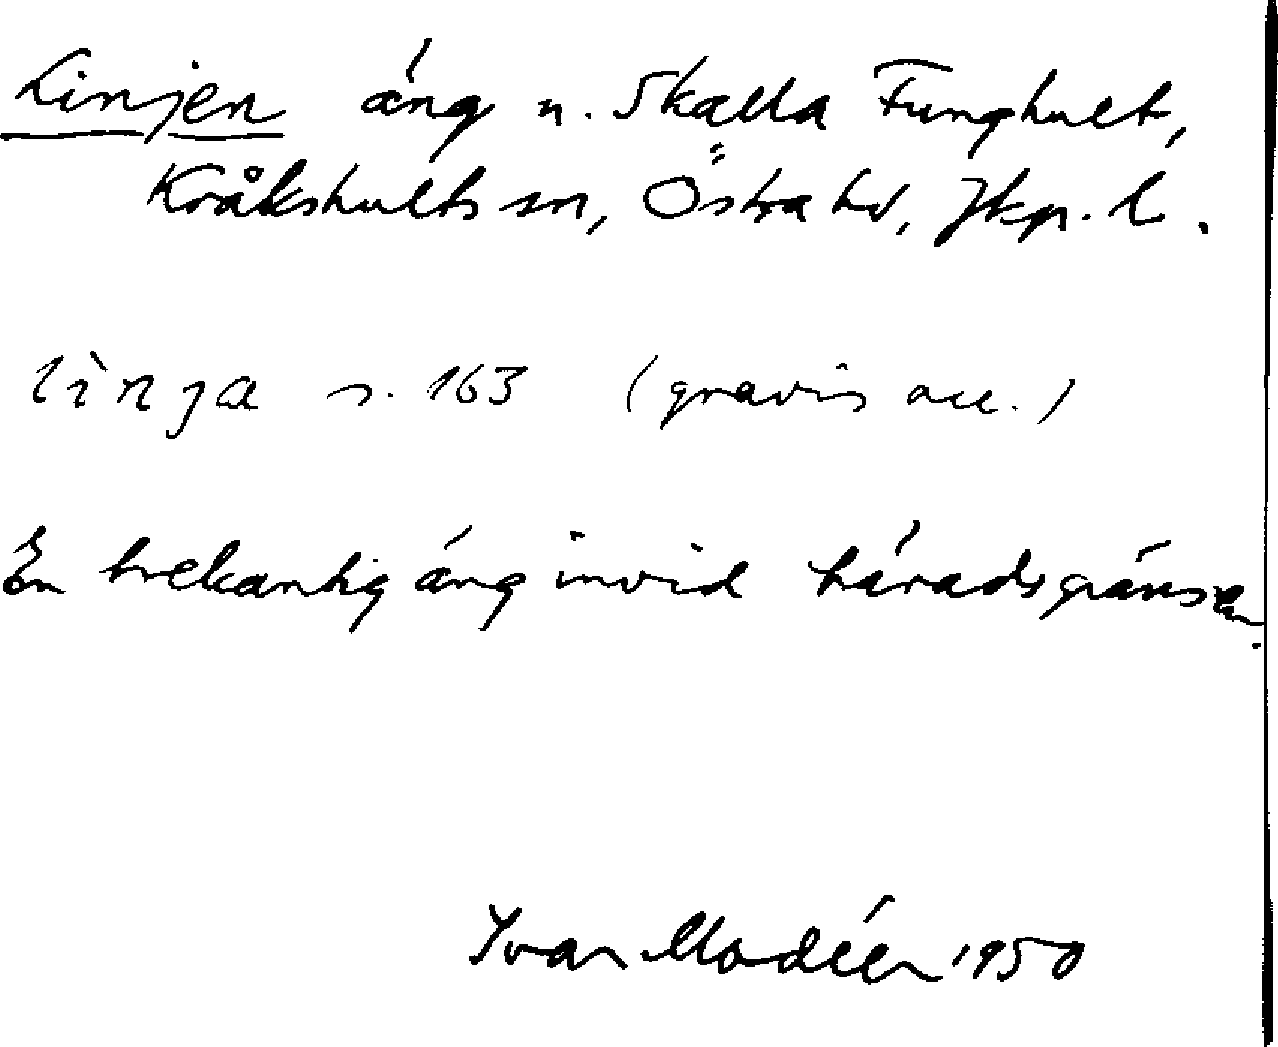 Linjen äng n. Skalla Funghult,
Kråkshults sn, Östra hd, Jkp. l.
lìnja s. 163 (gravis acc.)
En trekantig äng invid häradsgränsen.
Ivar Modéer 1950